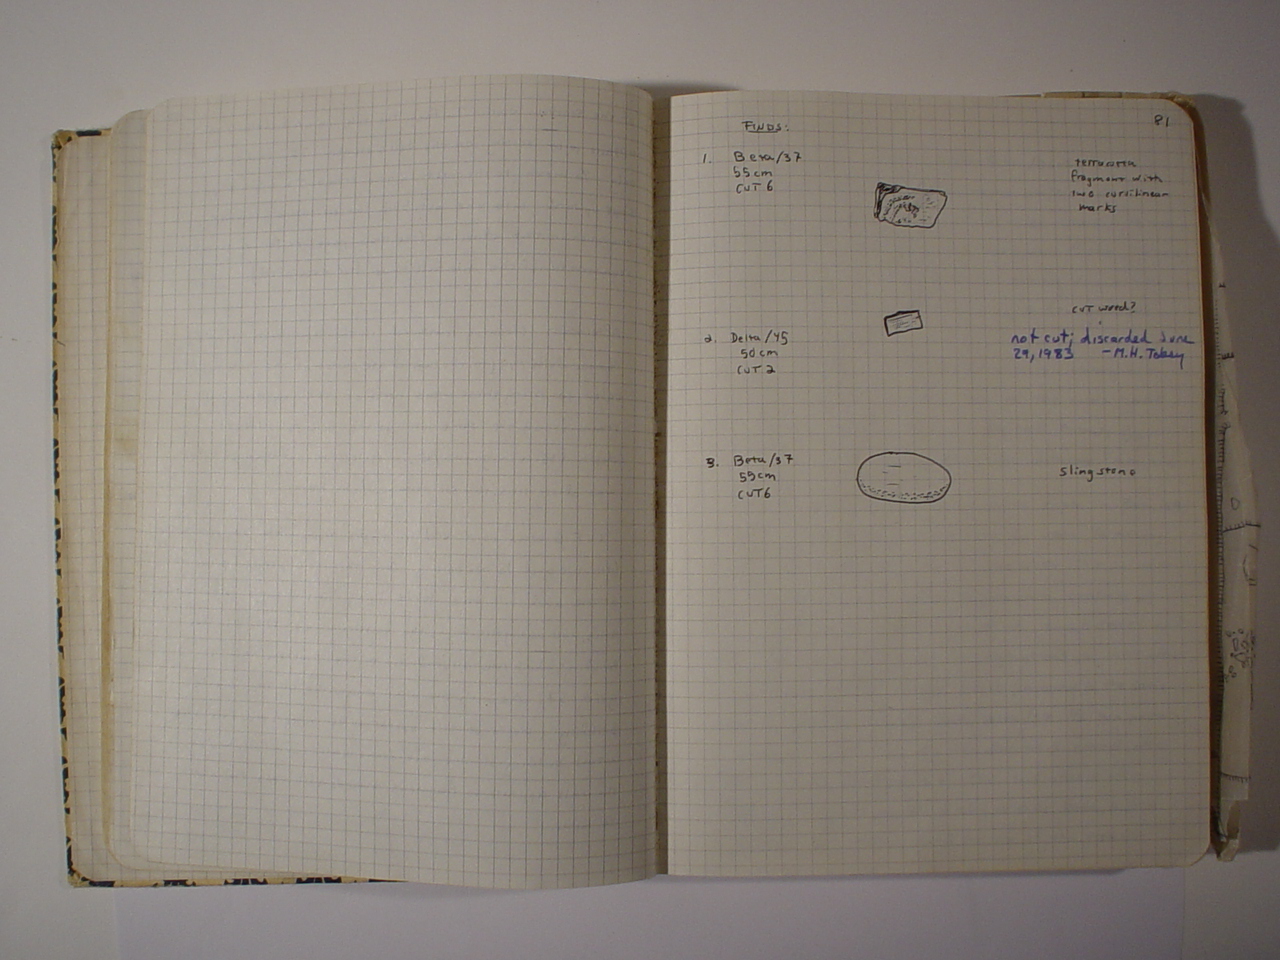 81
FINDS:
1. Beta/37
55cm
CUT 6
terracotta
fragment with
two curvilinear
marks
cut wood?
2. Delta/45
50cm
CUT 2
not cut; discarded June
29, 1983 -M.H. Tobey
3. Beta/37
55cm
CUT6
slingstone